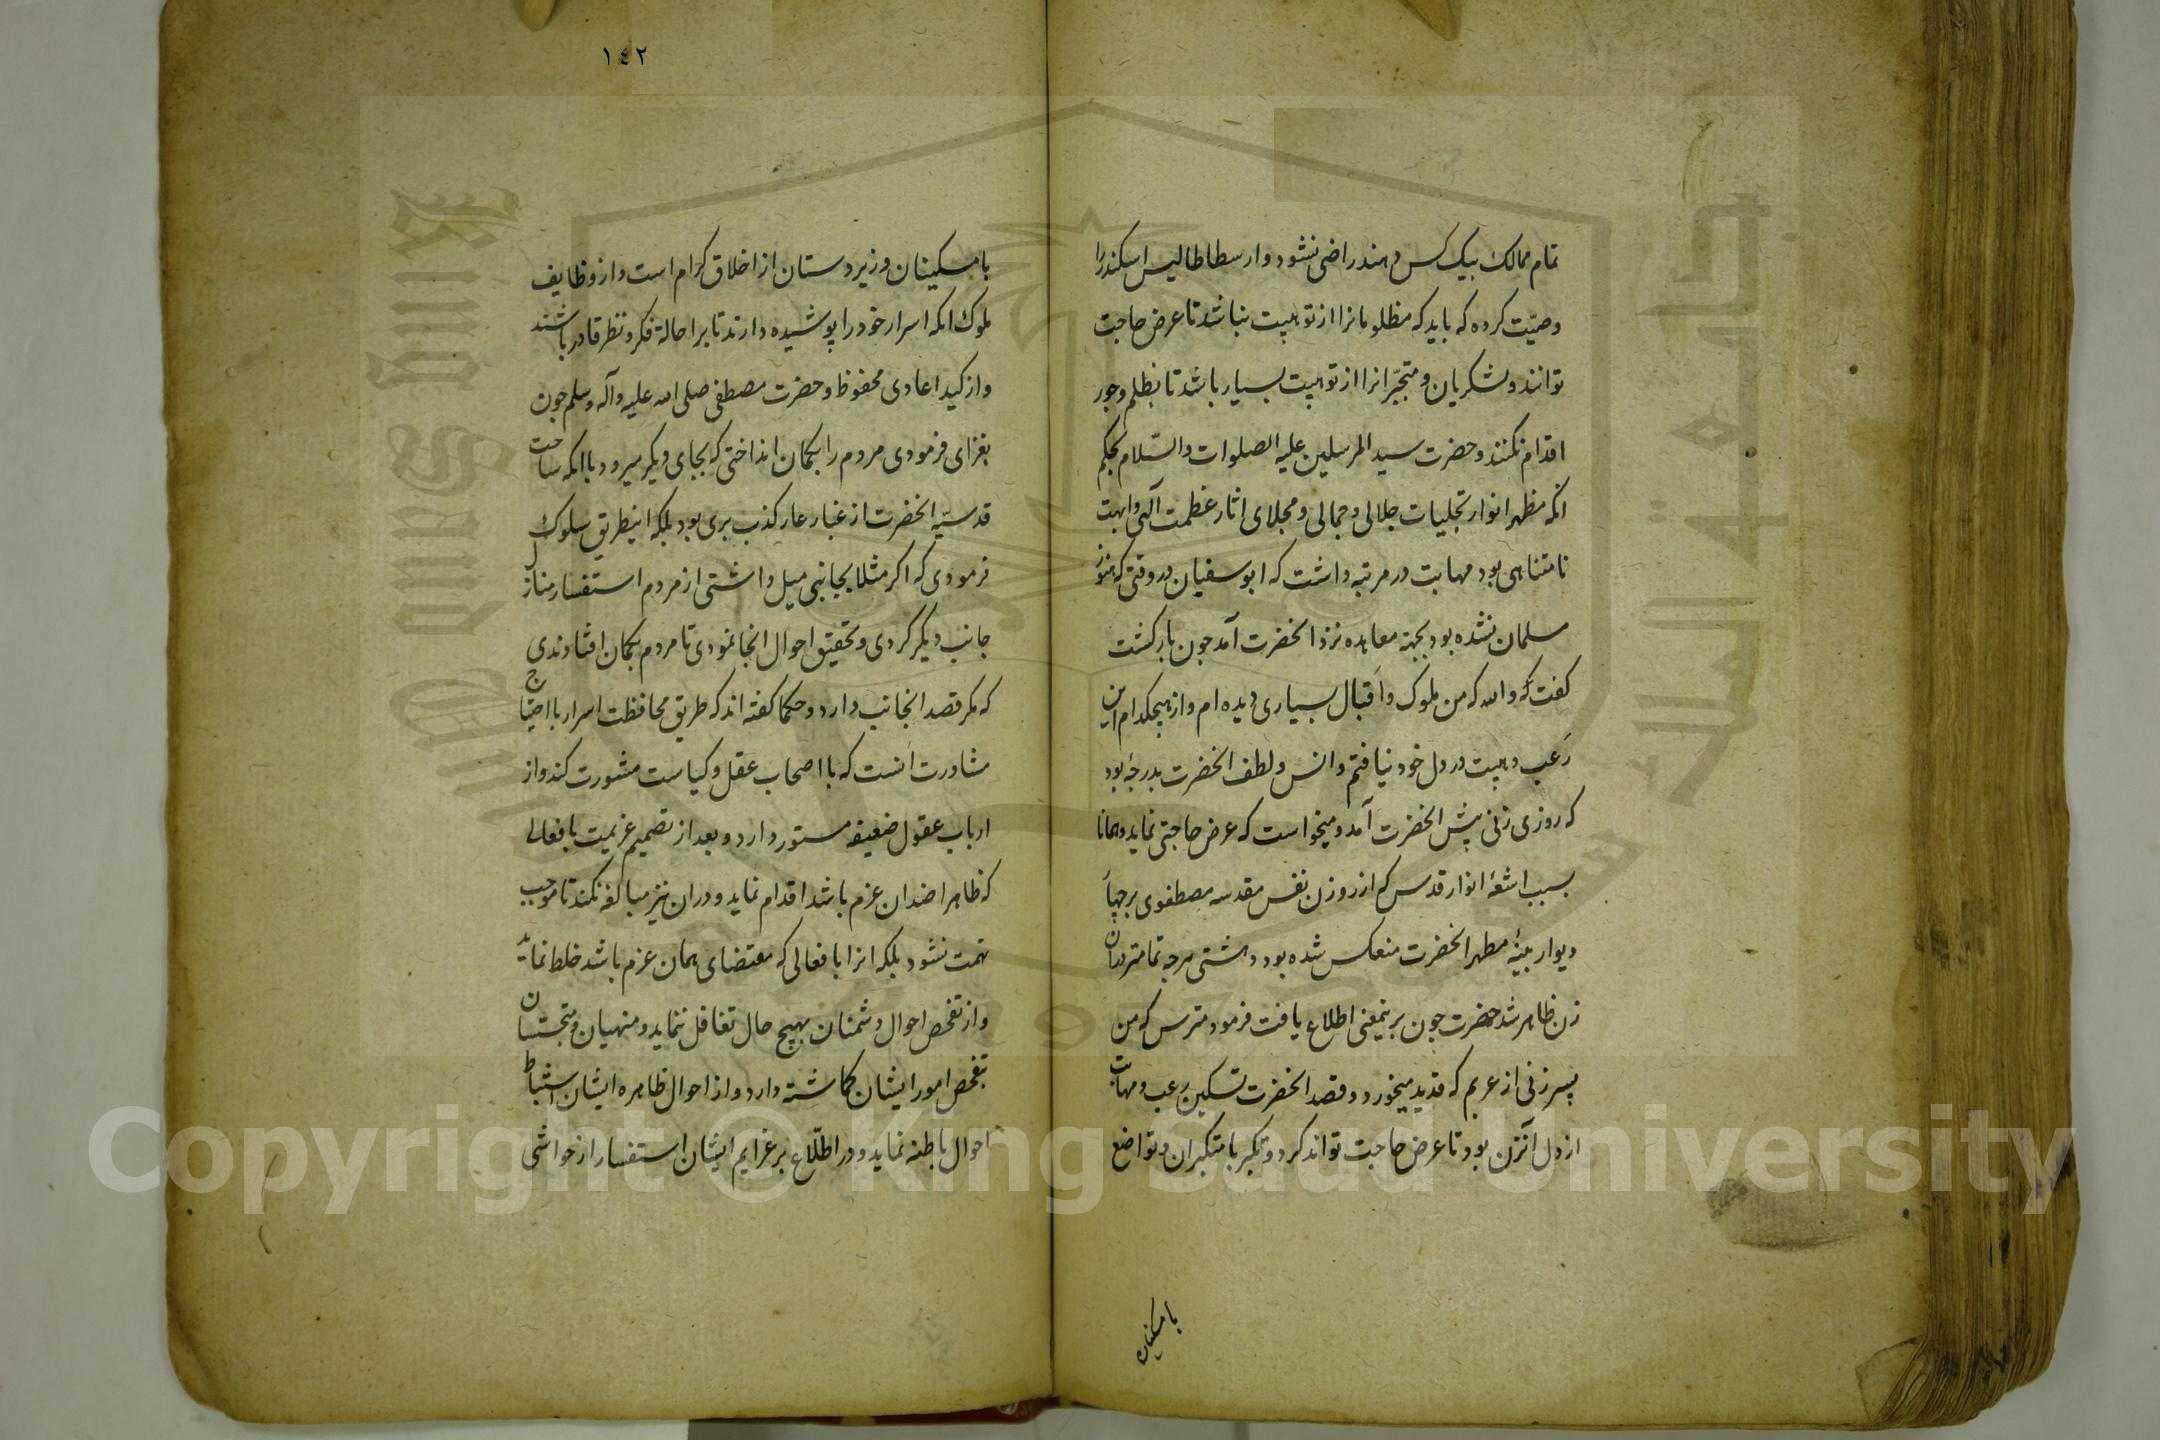 تمام ممالک بیک کس دهند راضی نشود و ارسطاطالیس اسکندر را
وصیّت کرده که باید که مظلومانرا از تو هیبت نباشد تا عرض حاجت
توانند و لشکریان و متجبّرانرا از تو هیبت بسیار باشد تا بظلم و جور
اقدام نکنند و حضرت سید المرسلین علیه الصلوات والسّلام بحکم
انکه مظهر انوار تجلیات جلالی و جمالی و مجلای اثار عظمت آلهی و ابهت
نامتناهی بود مهابت در مرتبه داشت که ابو سفیان در وقتی که هنوز
مسلمان نشده بود بجهة معاهده نزد انحضرت آمد جون بازکشت
کفت که والله که من ملوک و اَقیال بسیاری دیده ام و از هیچکدام این
رَعب و هیبت در دل خود نیافتم و انس و لطف انحضرت بدرجهٔ بود
که روزی زنی پیش انحضرت آمد و میخواست که عرض حاجتی نماید و همانا
بسبب اشعهٔ انوار قدس که از روزن نفس مقدسه مصطفوی بر جهات
دیوار بنیهٔ مطهر انحضرت منعکس شده بود دهشتی هرچه تمامتر بدان
زن ظاهر شد حضرت جون برینمعنی اطلاع یافت فرمود مترس که من
پسر زنی از عربم که قدید میخورد و قصد انحضرت تسکین رعب و مهابت
از دل آنزن بود تا عرض حاجت تواند کرد و تکبر با متکبران و تواضع
با مسکینان
١٤٢
با مسکینان و زیردستان از اخلاق کرام است و از وظایف
ملوک انکه اسرار خود را پوشیده دارند تا بر احالهٔ فکر و نظر قادر باشند
و از کید اعادی محفوظ و حضرت مصطفی صلی الله علیه وآله وسلم جون
بغزای فرمودی مردم را بکمان انداختی که بجای دیکر میرود با انکه ساحت
قدسیّه انحضرت از غبار عار کذب بری بود بلکه اینطریق سلوک
فرمودی که اکر مثلا بجانبی میل داشتی از مردم استفسار منازل
جانب دیکر کردی و تحقیق احوال انجا نمودی تا مردم بکمان افتادندی
که مکر قصد انجانب دارد و حکما کفته اند که طریق محافظت اسرار با احتیاج
مشاورت اَنست که با اصحاب عقل و کیاست مشورت کند و از
ارباب عقول ضعیفه مستور دارد و بعد از تصمیم عزیمت بافعالی
که ظاهرا ضد ان عزم باشد اقدام نماید و دران نیز مبالغه نکند تا موجب
تهمت نشود بلکه انرا بافعالی که مقتضای همان عزم باشد خلط نماید
و از تفحص احوال دشمنان بهیچ حال تغافل ننماید و منهیان و متجسّسان
بتفحص امور ایشان کماشته دارد و از احوال ظاهره ایشان استنباط
احوال باطنه نماید و در اطّلاع بر عزایم ایشان استفسار از حواشی
Copyright © King Saud University